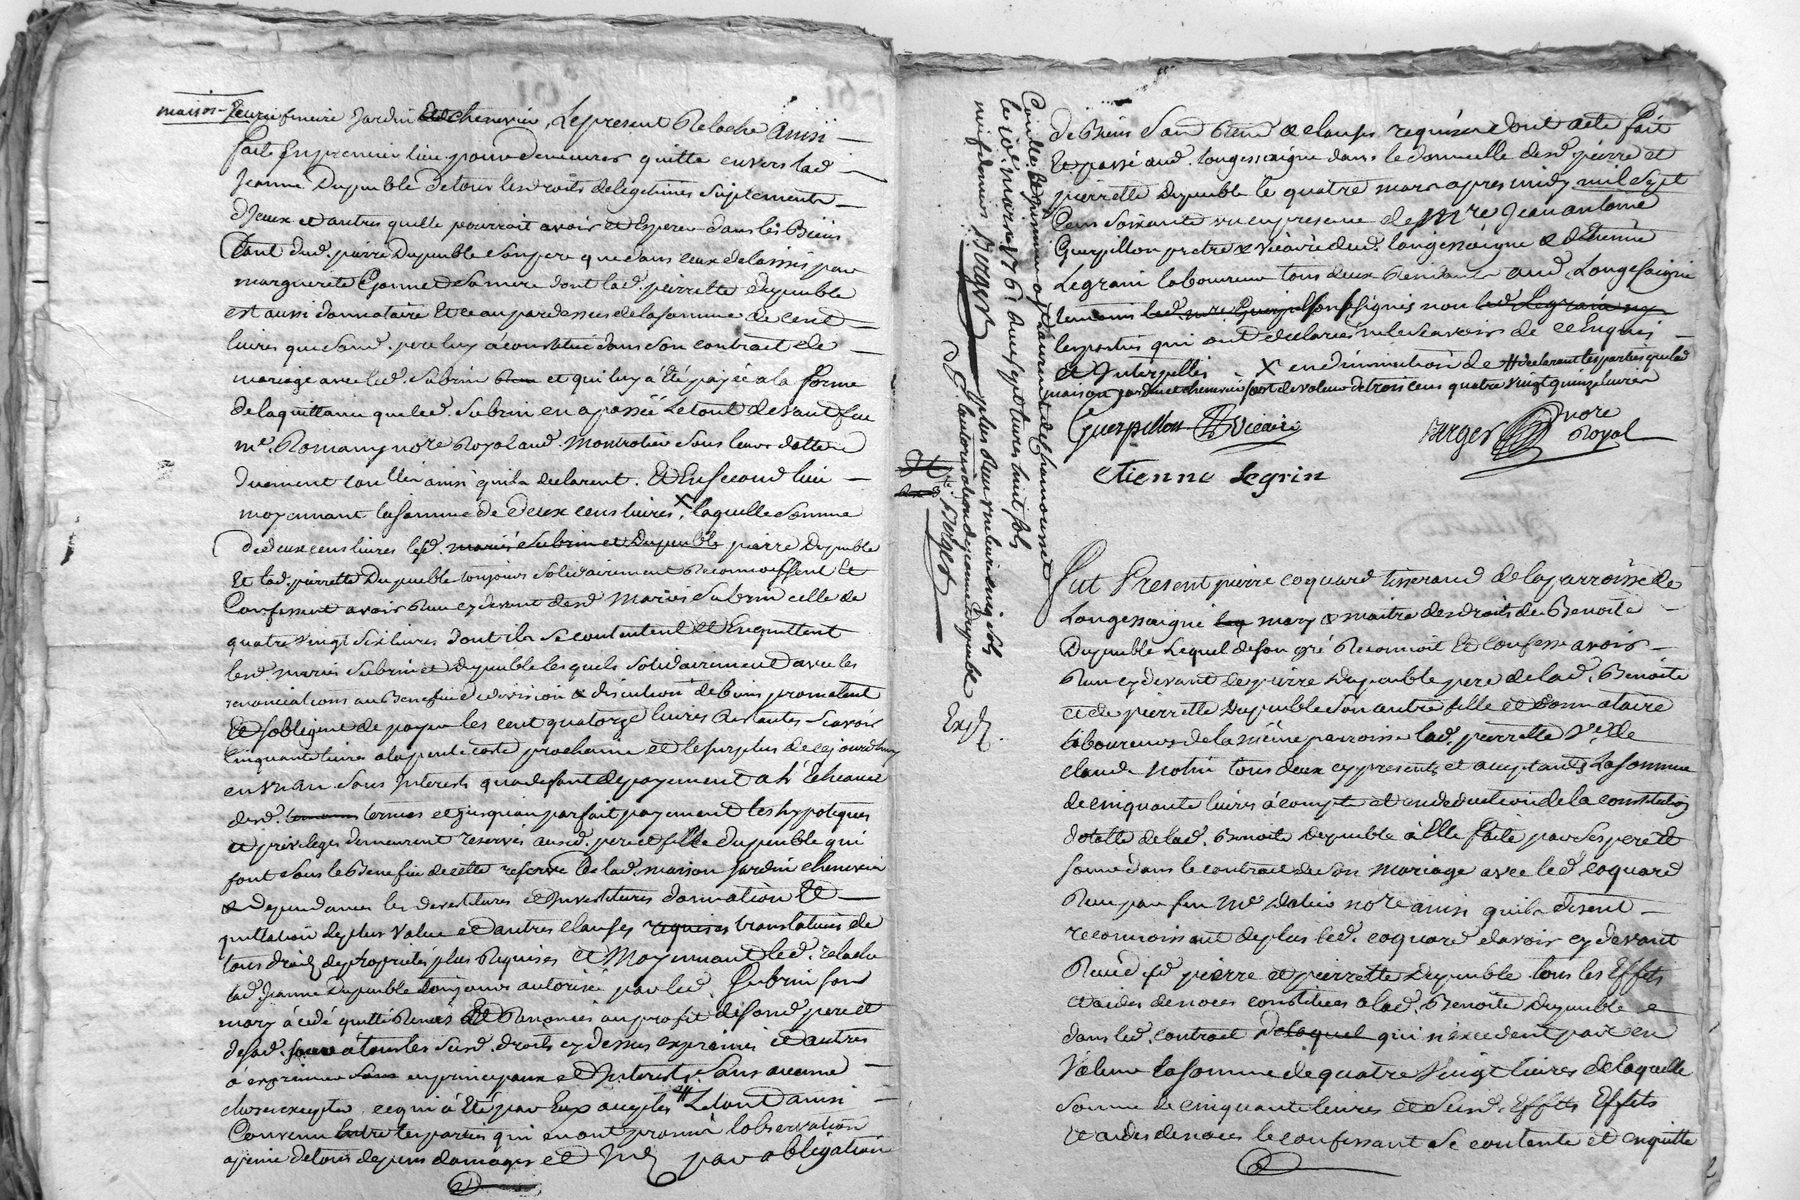 maison fenrie jardin chenevier, Le present Relache Ainsi
fait En premier lieu pour demeurer quitte envers lad.
Jeanne Dupuble de tous les droits de legitimes Suplements
D'Jceux et autres quelle pourroit avoir et Esperer dans les Biens
Tant dud. pierre Dupuble Son pere que dans ceux delaissés par
marguerite Sa mere dont lad. pierrette Dupuble
est aussi donnataire Et ce au par dessus de la Somme de cent
livres que Sond. pere luy a constitué dans Son contrat de
mariage avec led. Subrin et qui luy a Eté payée a la forme
de la quittance que led. Subrin en a passée Le tout devant feu
me. Romany nore Royal aud. Montrotier Sous leurs dattes
duement ainsi qu'ils declarent. Et En Second lieu
moyennant la Somme de Deux cens livres X, laquelle Somme
de deux cens livres lesd. mariés Subrin et Dupuble pierre Dupuble
Et lad. pierrette Dupuble toujours Solidairement Reconnoissent Et
Confessent avoir Reçu cy devant desd. Mariés Subrin celle de
quatre vingt Six livres dont ils Se contentent et En quittent
lesd. mariés Subrin et Dupuble lesquels Solidairement avec les
renonciations au Benefice de division & discution de biens promettent
Et S'obligent de payer les cent quatorze livres Restantes Scavoir
Cinquante livres a la pentecoste prochaine et le Surplus de ce jourd'huy
en un an Sans Interests qu'a defaut de payement a l'Echeance
desd. termes et jusqu'au parfait payement les hypoteques
et privileges demeurent reservés auxd. pere et fille Dupuble qui
font Sous le Benefice de cette reserve de lad. maison Jardin chenevier
& dependances les devestitures et Investitures donnation Et
quittation de plus value et autres clauses requises translatives de
tous droits de proprietés plus Requises et Moyennant led. relache
lad. Jeanne Dupuble toujours autorisée par led. Subrin Son
mary a cedé quitté Remis Et Renoncé au profit de Sond. pere et
de Sad. Soeur a tous les Susd. droits cy dessus exprimés et autres
a exprimer Sans en principaux et Interests Sans aucune
chose excepter, ce qui a Eté par Eux accepté # Le tout ainsi
Convenu Entre les parties qui en ont promis l'observation
a peine de tous depens domages et par obligation
de Biens Sand clauses requises dont acte fait
Et passé aud. Longessaigne dans le domicille desd. pierre et
pierrette Dupuble le quatre mars apres midy mil Sept
Cens Soixante un en presence de Mre Jean antoine
Guerpillon pretre & vicaire dud. Longessaigne & d'Etienne
Legrain laboureur tous deux Residants aud. Longessaigne
temoins led. mre Guerpillon Signés non led. Legrain ny
les parties qui ont declarés ne le Scavoir de ce Enquis
et Interpellés X en diminution de # declarant les parties que lad
maison jardin et chenevier sont de valeur de trois cens quatre vingt quinze livres
Guerpillon Vicaire
Berger nore
Royal
Etienne Legrin
le 10e. mars 1761 Reçu Sept livres huit Sols
Berger
plus Reçu
l'autorisation de jeanne Dupuble
Berger
Exp.
Fut Present pierre coquard tisserand de la parroisse de
Longessaigne mary & maitre des droits de Benoite
Dupuble Lequel de Son gré Reconnoit Et Confesse avoir
Reçu cy devant de pierre Dupuble pere de lad. Benoite
et de pierrette Dupuble Son autre fille et Donnataire
laboureurs de la même parroisse lad. pierrette Ve. de
claude Notin tous deux cy presents et acceptants La Somme
de cinquante livres a compte et en deduction de la constitution
dotalle de lad. Benoite Dupuble a Elle faite par Ses pere et
dans le contrat de Son Mariage avec led. coquard
Reçu par feu Me nore ainsi qu'ils disent
reconnoissant de plus led. coquard d'avoir cy devant
Reçu desd. pierre et pierrette Dupuble tous les Effets
et aides de noces constitués a lad. Benoite Dupuble
dans led. contrat de laquel qui n'excedent pas en
Valeur la Somme de quatre Vingt livres de laquelle
Somme de cinquante livres et Susd. Effets Effets
et aides de noces le confessant Se contente et en quitte